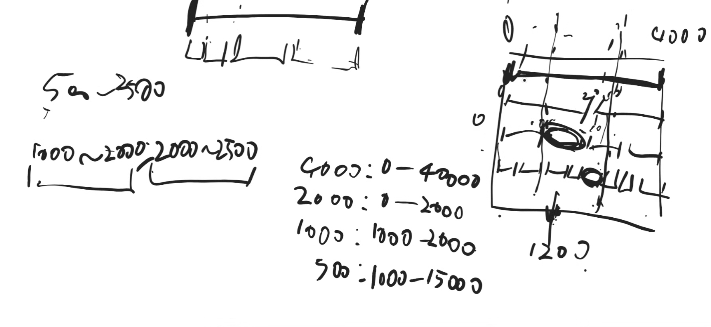 0 4000
500~2500
0
1000~2000 2000~2500
4000:0-40000
2000:0-2000
1000:1000-2000
500:1000-15000
1200